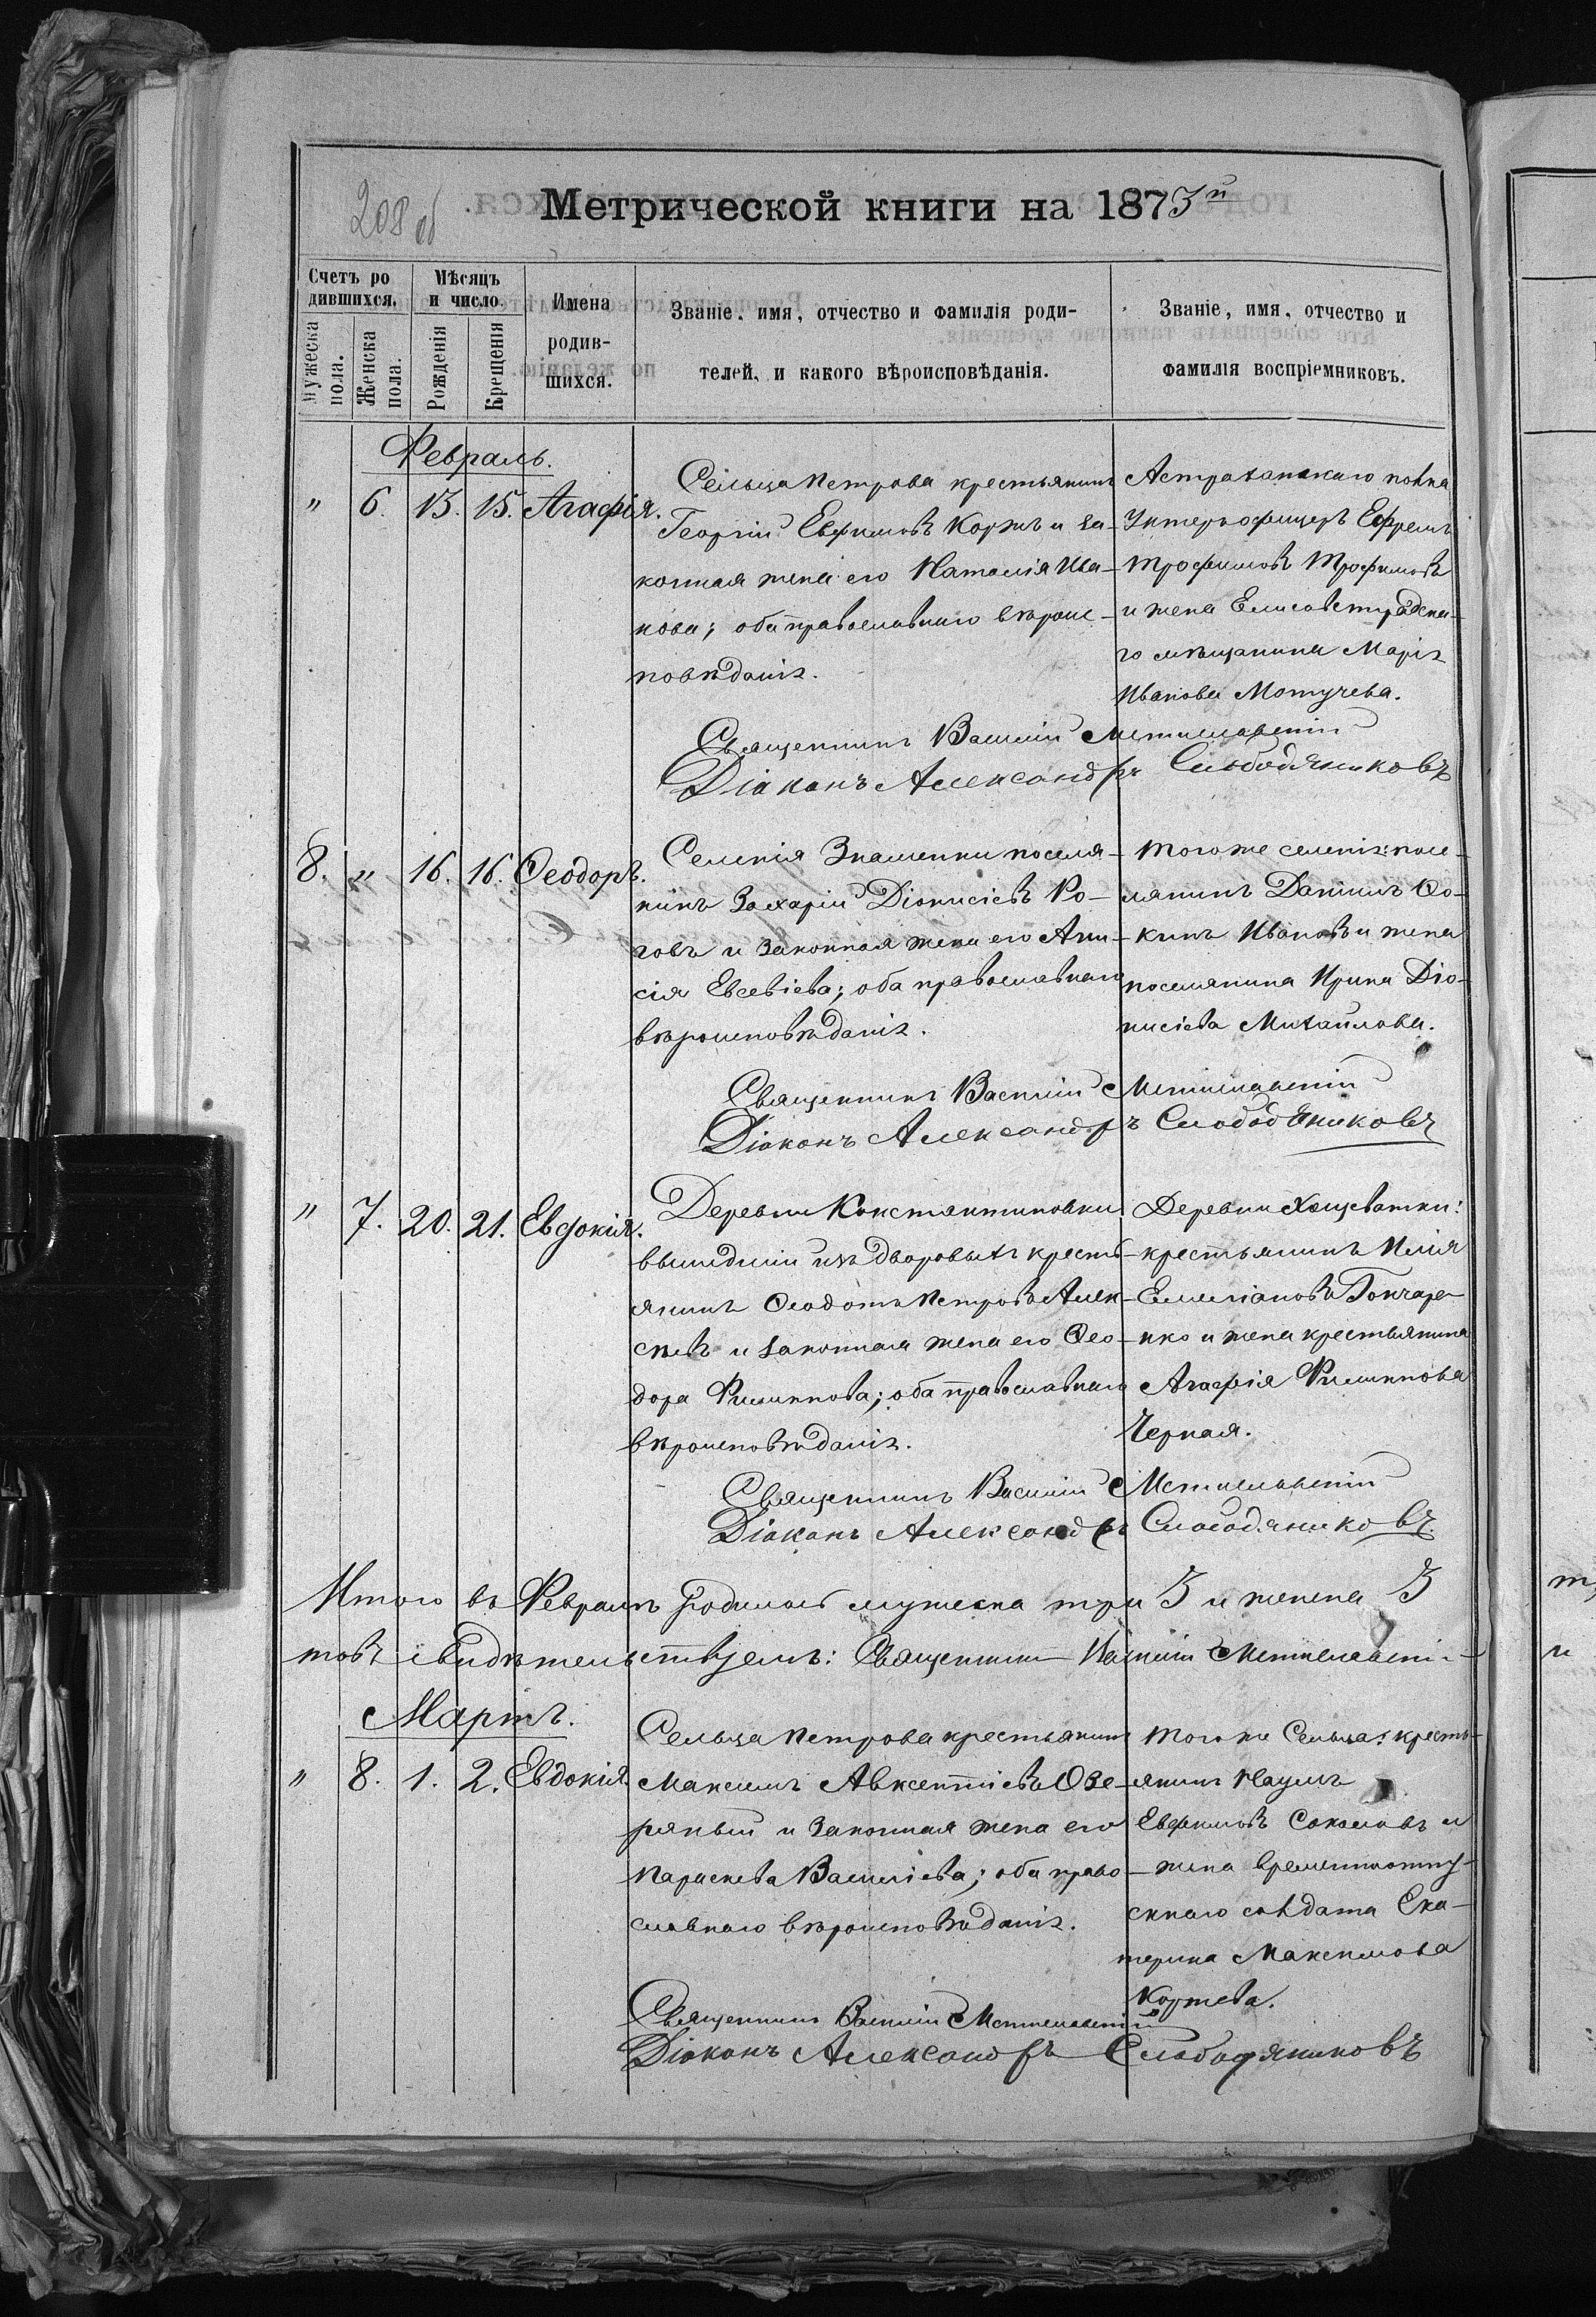 208 об
Метрической книги на 1873й
Счетъ ро
дившихся.
Мужеска
пола.
Женска
пола.
Мѣсяцъ
и число.
Рожденія
Крещенія
Имена
родив-
шихся.
Званіе, имя, отчество и фамилія роди-
телей, и какого вѣроисповѣданія.
Званіе, имя, отчество и
фамилія воспріемниковъ.
Февраль.
" 6. 13. 15. Агафія.
Сельца Петрова крестьянинъ
Георгій Евфимовъ Коржъ и за-
конная жена его Наталія Ива-
нова; оба православнаго вѣроис-
повѣданія.
Астраханскаго полка
Унтерофицеръ Ефремъ
Трофимовъ Трофимовъ
и жена Елисаветградска-
го мѣщанина Марія
Иванова Мотучева.
Священникъ Василій Мстиславскій
Діаконъ Александръ Слободяниковъ
8. " 16. 16. Ѳеодоръ.
Селенія Знаменки поселя-
нинъ Захарій Діонисіевъ Ро-
говъ и законная жена его Ани-
сія Евсевіева; оба православнаго
вѣроисповѣданія.
Того же селенія: посе-
лянинъ Даніилъ Ѳо-
кинъ Ивановъ и жена
поселянина Ирина Діо-
нисіева Михайлова.
Священникъ Василій Мстиславскій
Діаконъ Александръ Слободяниковъ
" 7. 20. 21. Евдокія.
Деревни Константиновки
вышедшій изъ дворовыхъ кресть-
янинъ Ѳеодотъ Петровъ Алек-
сѣевъ и законная жена его Ѳео-
дора Филиппова; оба православнаго
вѣроисповѣданія.
Деревни Хащеватки:
крестьянинъ Илія
Емеліановъ Гончаре-
нко и жена крестьянина
Агафія Филиппова
Черная.
Священникъ Василій Мстиславскій
Діаконъ Александръ Слободяниковъ.
Итого въ Февралѣ родилось мужеска три 3 и женска 3
товъ свидѣтельствуемъ: Священникъ Василій Мстиславскій
Мартъ.
" 8. 1. 2. Евдокія
Сельца Петрова крестьянинъ
Максимъ Авксентіевъ Озе-
ряный и законная жена его
Параскева Василіева; оба право-
славнаго вѣроисповѣданія.
Того же Сельца: кресть-
янинъ Наумъ
Евфимовъ Соколовъ и
жена временноотпу-
скнаго солдата Ека-
терина Максимова
Коржева.
Священникъ Василій Мстиславскій
Діаконъ Александръ Слободяниковъ